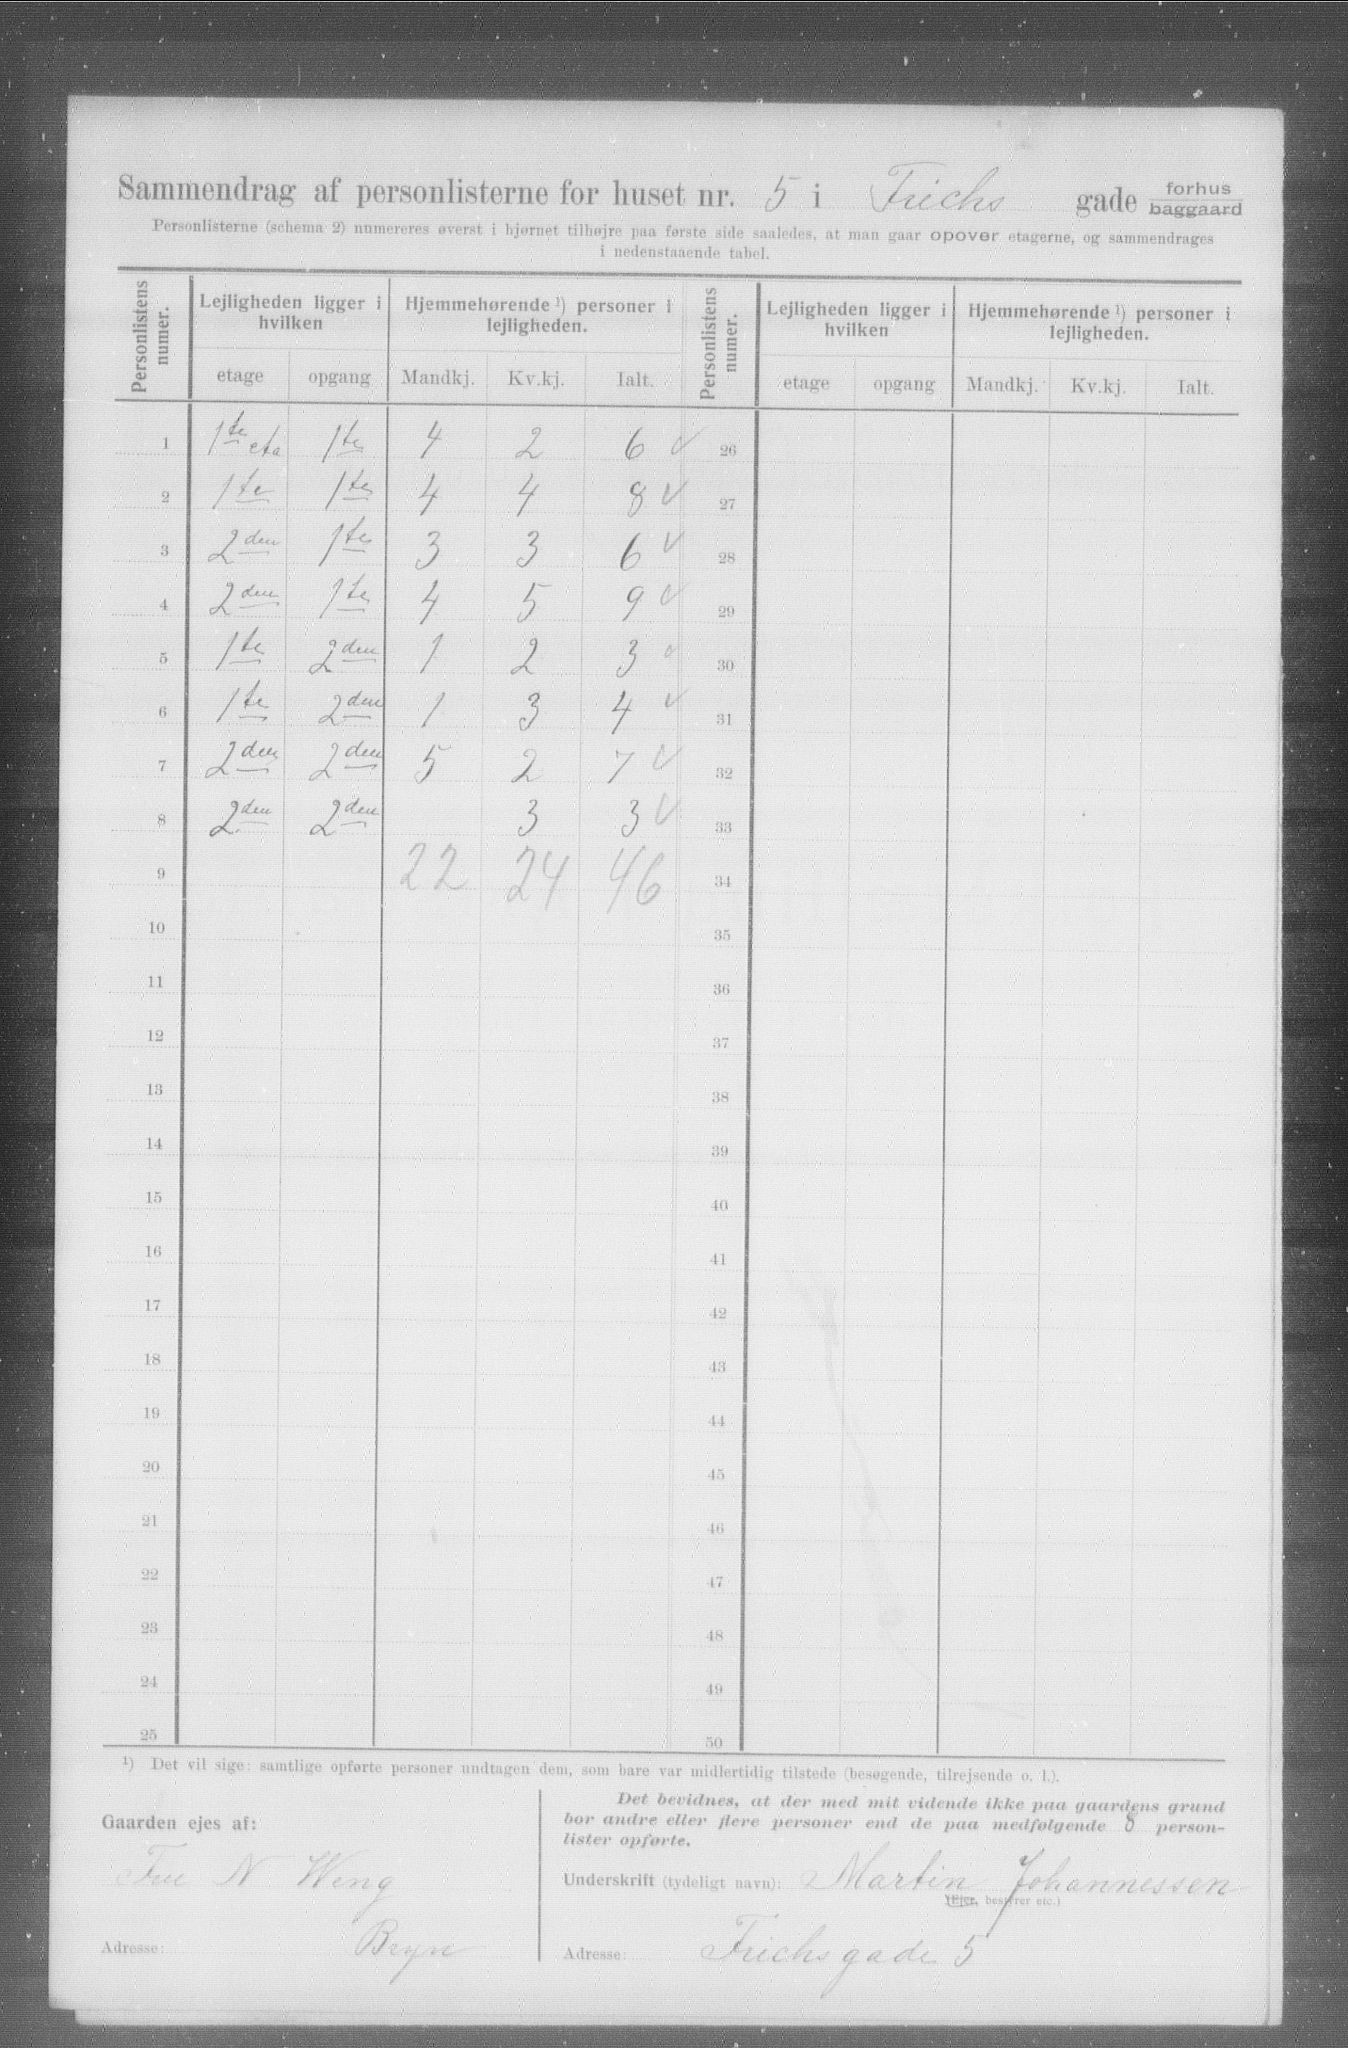 Sammendrag af personlisterne for huset nr. 5 i Frichs gade forhus
baggaard
Personlisterne (schema 2) numereres øverst i hjørnet tilhøjre paa første side saaledes, at man gaar opover etagerne, og sammendrages
i nedenstaaende tabel.
Personlistens numer. Lejligheden ligger i hvilken Hjemmehørende ¹) personer i lejligheden. Personlistens numer. Lejligheden ligger i hvilken Hjemmehørende ¹) personer i lejligheden.
etage opgang Mandkj. Kv.kj. Ialt. etage opgang Mandkj. Kv.kj. Ialt.
1 1te eta 1te 4 2 6 ✓ 26
2 1te 1te 4 4 8 ✓ 27
3 2den 1te 3 3 6 ✓ 28
4 2den 1te 4 5 9 ✓ 29
5 1te 2den 1 2 3 ✓ 30
6 1te 2den 1 3 4 ✓ 31
7 2den 2den 5 2 7 ✓ 32
8 2den 2den 3 3 ✓ 33
9 22 24 46 34
10 35
11 36
12 37
13 38
14 39
15 40
16 41
17 42
18 43
19 44
20 45
21 46
22 47
23 48
24 49
25 50
¹) Det vil sige: samtlige opførte personer undtagen dem, som bare var midlertidig tilstede (besøgende, tilrejsende o. l.).
Gaarden ejes af:
N Weng
Adresse: Bryn
Det bevidnes, at der med mit vidende ikke paa gaardens grund
bor andre eller flere personer end de paa medfølgende 8 person-
lister opførte.
Underskrift (tydeligt navn): Martin Johannessen
(Ejer, bestyrer etc.)
Adresse: Frichsgade 5